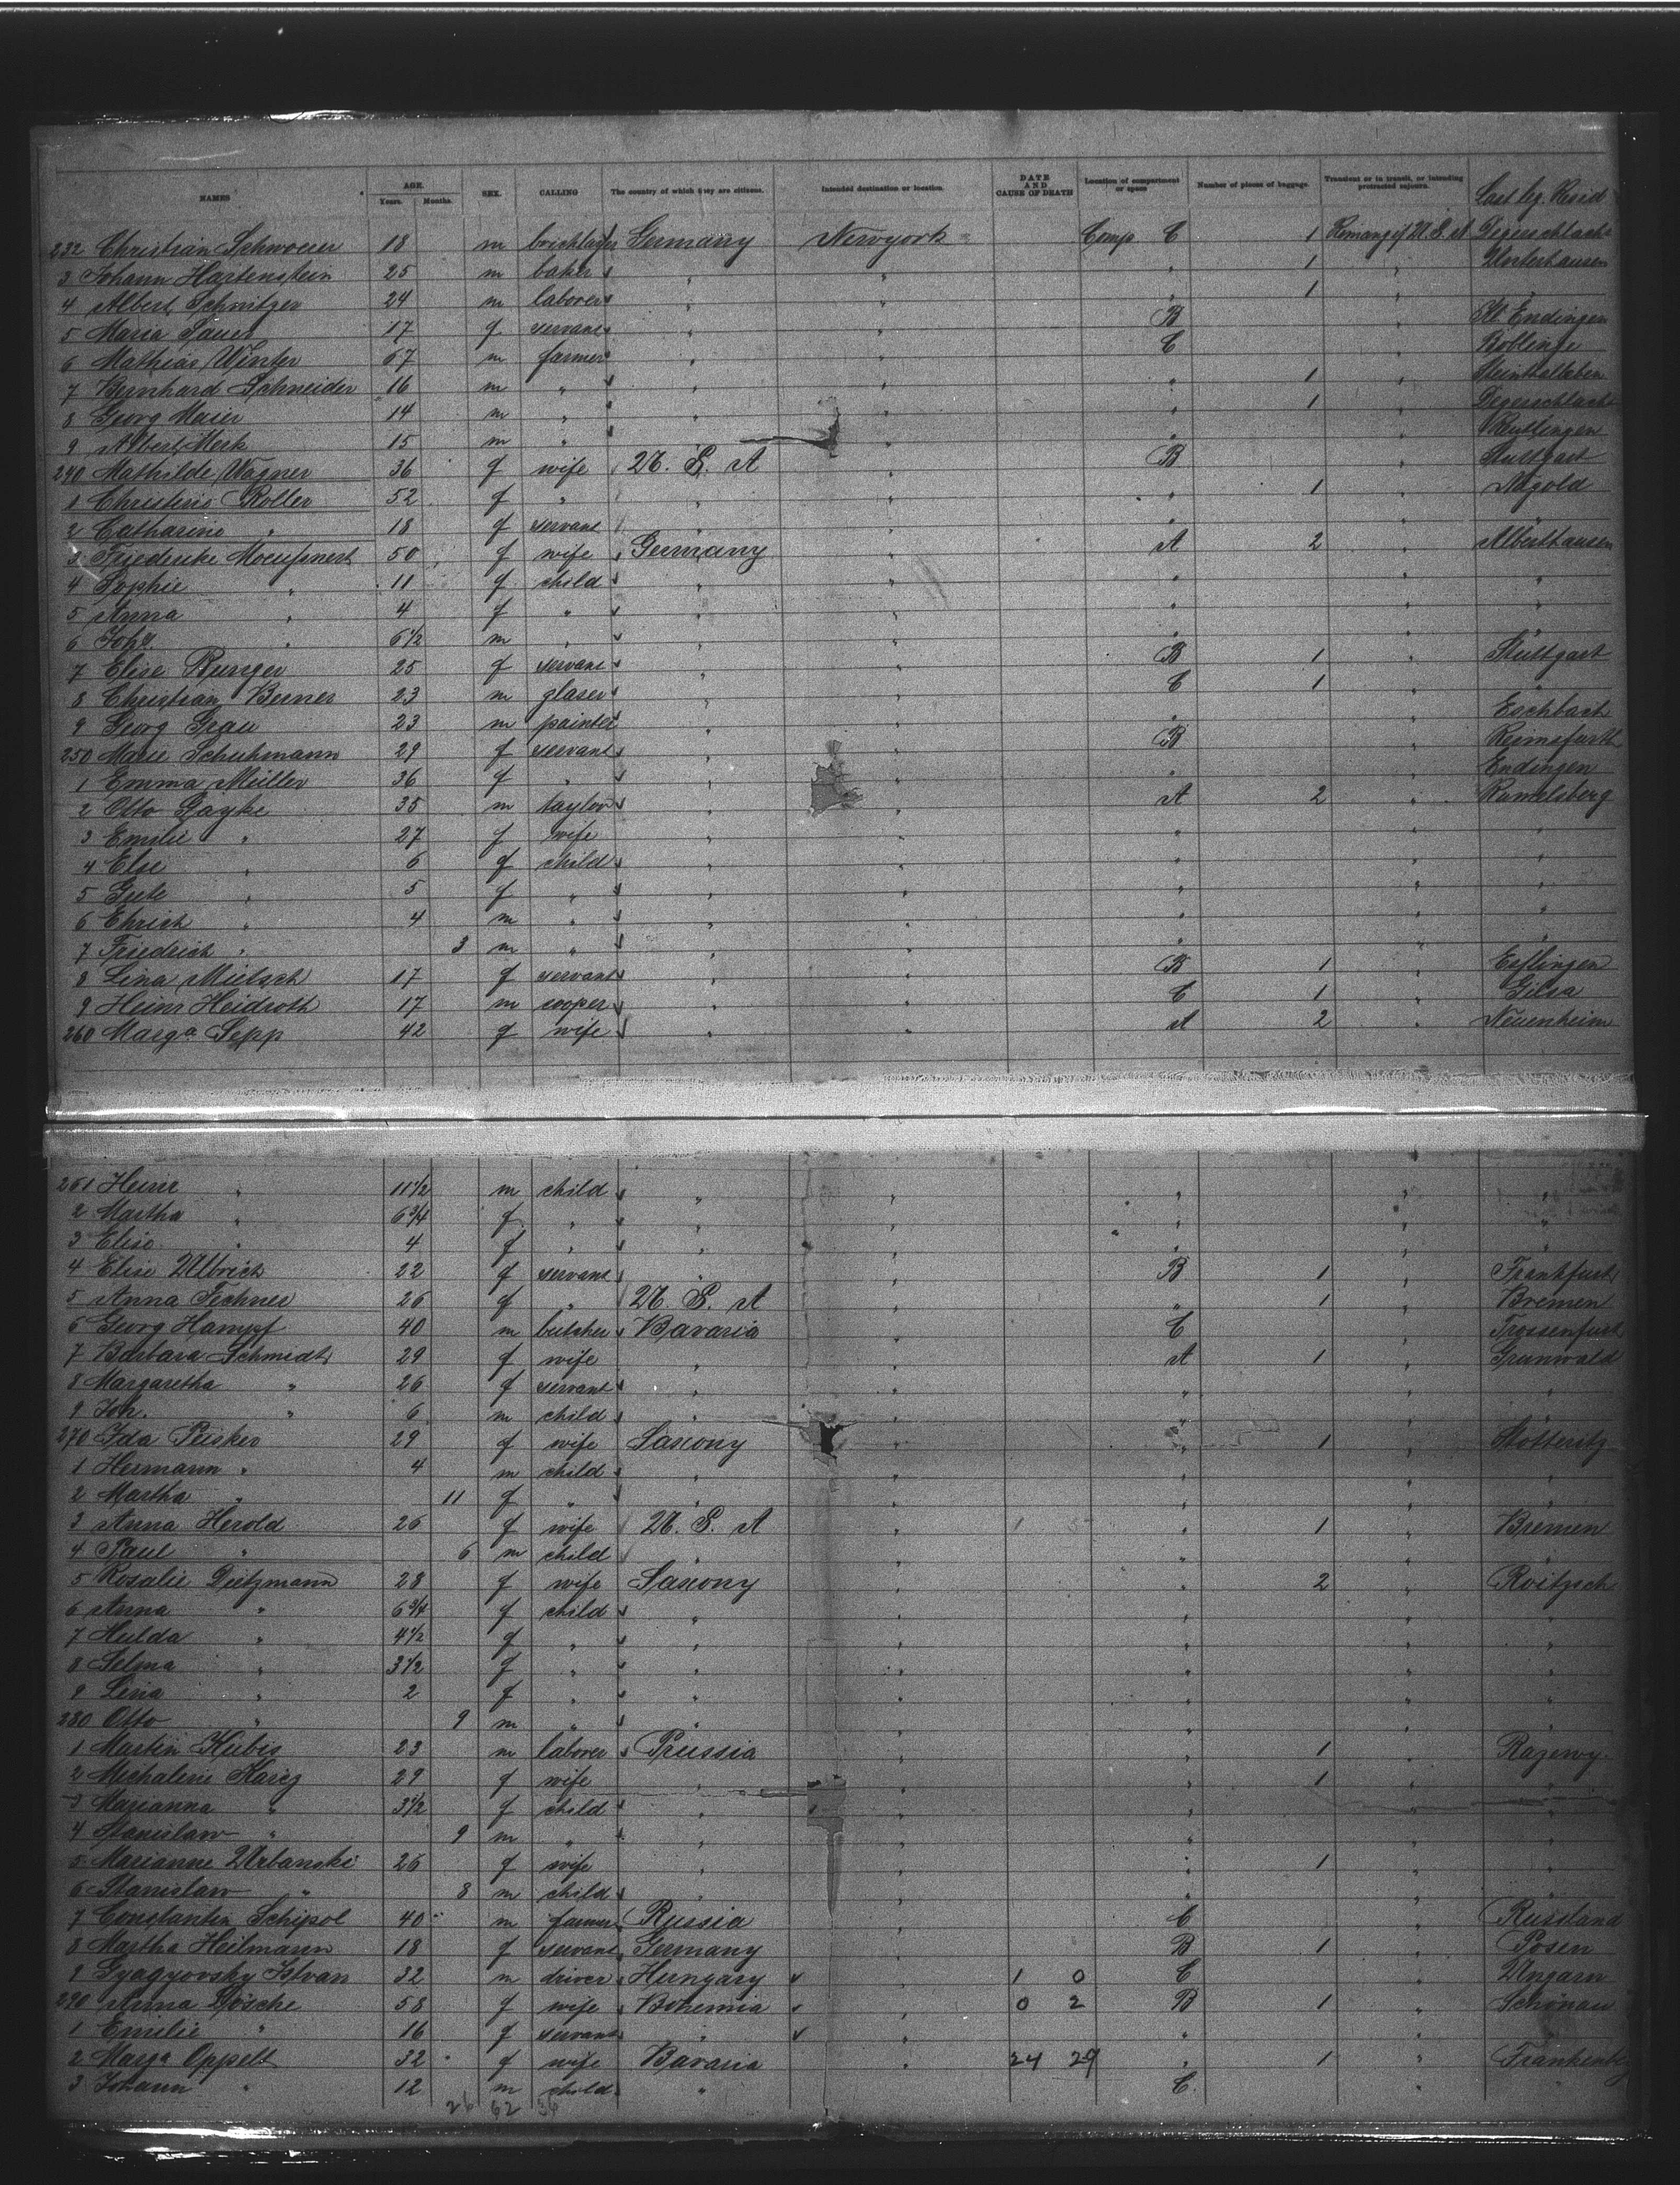 NAMES AGE. Years. Months. SEX. CALLING The country of which they are citizens. Intended destination or location. DATE AND CAUSE OF DEATH Location of compartment or space Number of pieces of baggage. Transient or in transit, or intending protracted sojourn. Last leg. Resid
232 Christian Schwoerer 18 m bricklayer Germany Newyork Comp. C 1 Degerschlacht
3 Johann Hartenstein 25 m baker " " " 1 " Unterhausen
4 Albert Schnitzer 24 m laborer " " " 1 " "
5 Maria Sauer 17 f servant " " B " Endingen
6 Mathias Winter 67 m farmer " " C "
7 Bernhard Schneider 16 m " " " " 1 "
8 Georg Maier 14 m " " " " 1 " Degerschlacht
9 Albert Merk 15 m " " " " " Reutlingen
240 Mathilde Wagner 36 f wife U. S. A " B " Stuttgart
1 Christine Roller 52 f " " " " 1 " Nagold
2 Catharine " 18 f servant " " " " "
3 Friederike 50 f wife Germany " A 2 " Alberthausen
4 Sophie " 11 f child " " " " "
5 Anna " 4 f " " " " " "
6 Joh. " 6 1/2 m " " " "
7 Elise Runger 25 f servant " " B 1 " Stuttgart
8 Christian Berner 23 m glaser " " C 1 " "
9 Georg Grau 23 m painter " " " " Eschbach
250 Marie Schuhmann 29 f servant " " B "
1 Emma Müller 36 f " " " " " Endingen
2 Otto 35 m taylor " " A 2 " Ramelsberg
3 Emilie " 27 f wife " " " " "
4 Else " 6 f child " " " " "
5 Grete " 5 f " " " " " "
6 Ehrich " 4 m " " " " " "
7 Friedrich " 3 m " " " " " "
8 Lina Mutsch 17 f servant " " B 1 " Esslingen
9 Heinr Heidroth 17 m cooper " " C 1 " Gilsa
260 Marga Sepp 42 f wife " " A 2 " Neuenheim
261 Heinr " 11 1/2 m child " " " " "
2 Martha " 6 3/4 f " " " " " "
3 Elise " 4 f " " " " " "
4 Elise Ulbrich 22 f servant " " B 1 " Frankfurt
5 Anna Fechner 26 f " U. S. A " " 1 " Bremen
6 Georg Hampf 40 m butcher Bavaria " C " Trossenfurt
7 Barbara Schmidt 29 f wife " " A 1 " Grunwald
8 Margaretha " 26 f servant " " " " "
9 Joh. " 6 m child " " " " "
270 Ida Peisker 29 f wife Saxony " " 1 " Stötteritz
1 Hermann " 4 m child " " " " "
2 Martha " 11 f " " " " " "
3 Anna Herold 26 f wife U. S. A " " 1 " Bremen
4 Paul " 6 m child " " " " "
5 Rosalie Dietzmann 28 f wife Saxony " " 2 " Roitzsch
6 Anna " 6 3/4 f child " " " " "
7 Hulda " 4 1/2 f " " " " " "
8 Selma " 3 1/2 f " " " " " "
9 Lina " 2 f " " " " " "
280 Otto " 9 m " " " " " "
1 Martin Kubis 23 m laborer Prussia " " 1 "
2 Michaline Karcz 29 f wife " " " 1 " "
3 Marianna " 3 1/2 f child " " " " "
4 Stanislaw " 9 m " " " " " "
5 Marianne Urbanski 26 f wife " " " 1 " "
6 Stanislaw " 8 m child " " " " "
7 Constantin Schipol 40 m farmer Russia " C " Russland
8 Martha Heilmann 18 f servant Germany " B 1 " Posen
9 Gyagyovsky Istvan 32 m driver Hungary " 1 0 C " Ungarn
290 Anna Lösche 58 f wife Bohemia " 0 2 B 1 " Schönau
1 Emilie " 16 f servant " " " " "
2 Marga Oppelt 32 f wife Bavaria " 24 29 " 1 " Frankenbg
3 Johann " 12 m child " " C " "
26 62 36